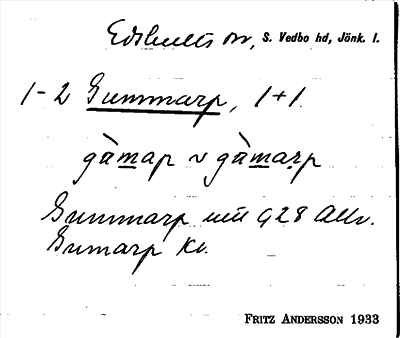 Edshults sn, S. Vedbo hd, Jönk. l.
1-2 Gummarp, 1+1
gàmap ~ gàmarp
Gummarp 928 Allm.
Gumarp Kv.
FRITZ ANDERSSON 1933